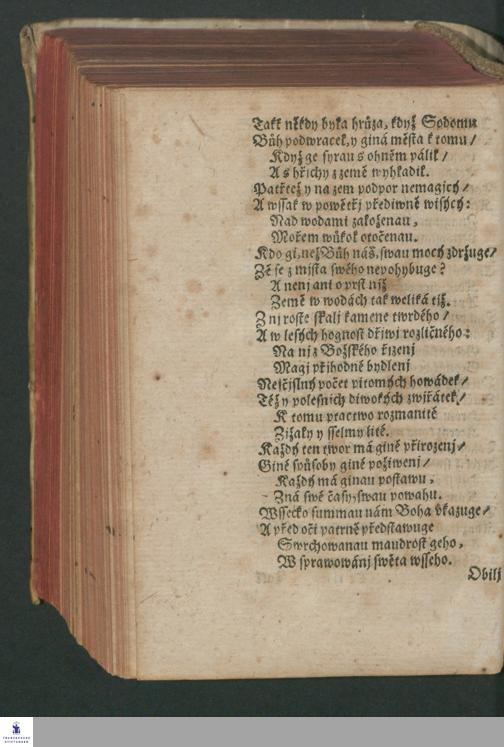 Takť někdy byla hrůza, když Sodomu
Bůh podwracel, y giná města k tomu /
Když ge syrau s ohněm pálil /
A s hřichy z země wyhladil.
Patřtež y na zem podpor nemagjcý /
A wssak w powětřj přediwně wisýcý:
Nad wodami založenau,
Mořem wůkol otočenau.
Kdo gi, než Bůh náš, swau mocý zdržuge /
Zě se z mjsta swého nepohybuge?
A nenj ani o prst níž
Země w wodách tak weliká tíž.
Z nj roste skalj kamene twrdého /
A w lesých hognost dřjwj rozličného:
Na nj z Božského řizenj
Magj přjhodné bydlenj
Nesčjslný počet pitomých howádek /
Též y polesnich diwokých zwiřátek /
K tomu ptactwo rozmanité
Zižaly y sselmy lité.
Každý ten twor má giné přirozenj /
Giné spůsoby giné požiwenj /
Každý má ginau postawu,
Zná swé časy, swau powahu.
Wssecko summau nám Boha vkazuge /
A před oči patrně předstawuge
Swrchowanau maudrost geho,
W sprawowánj swěta wsseho.
Obilj